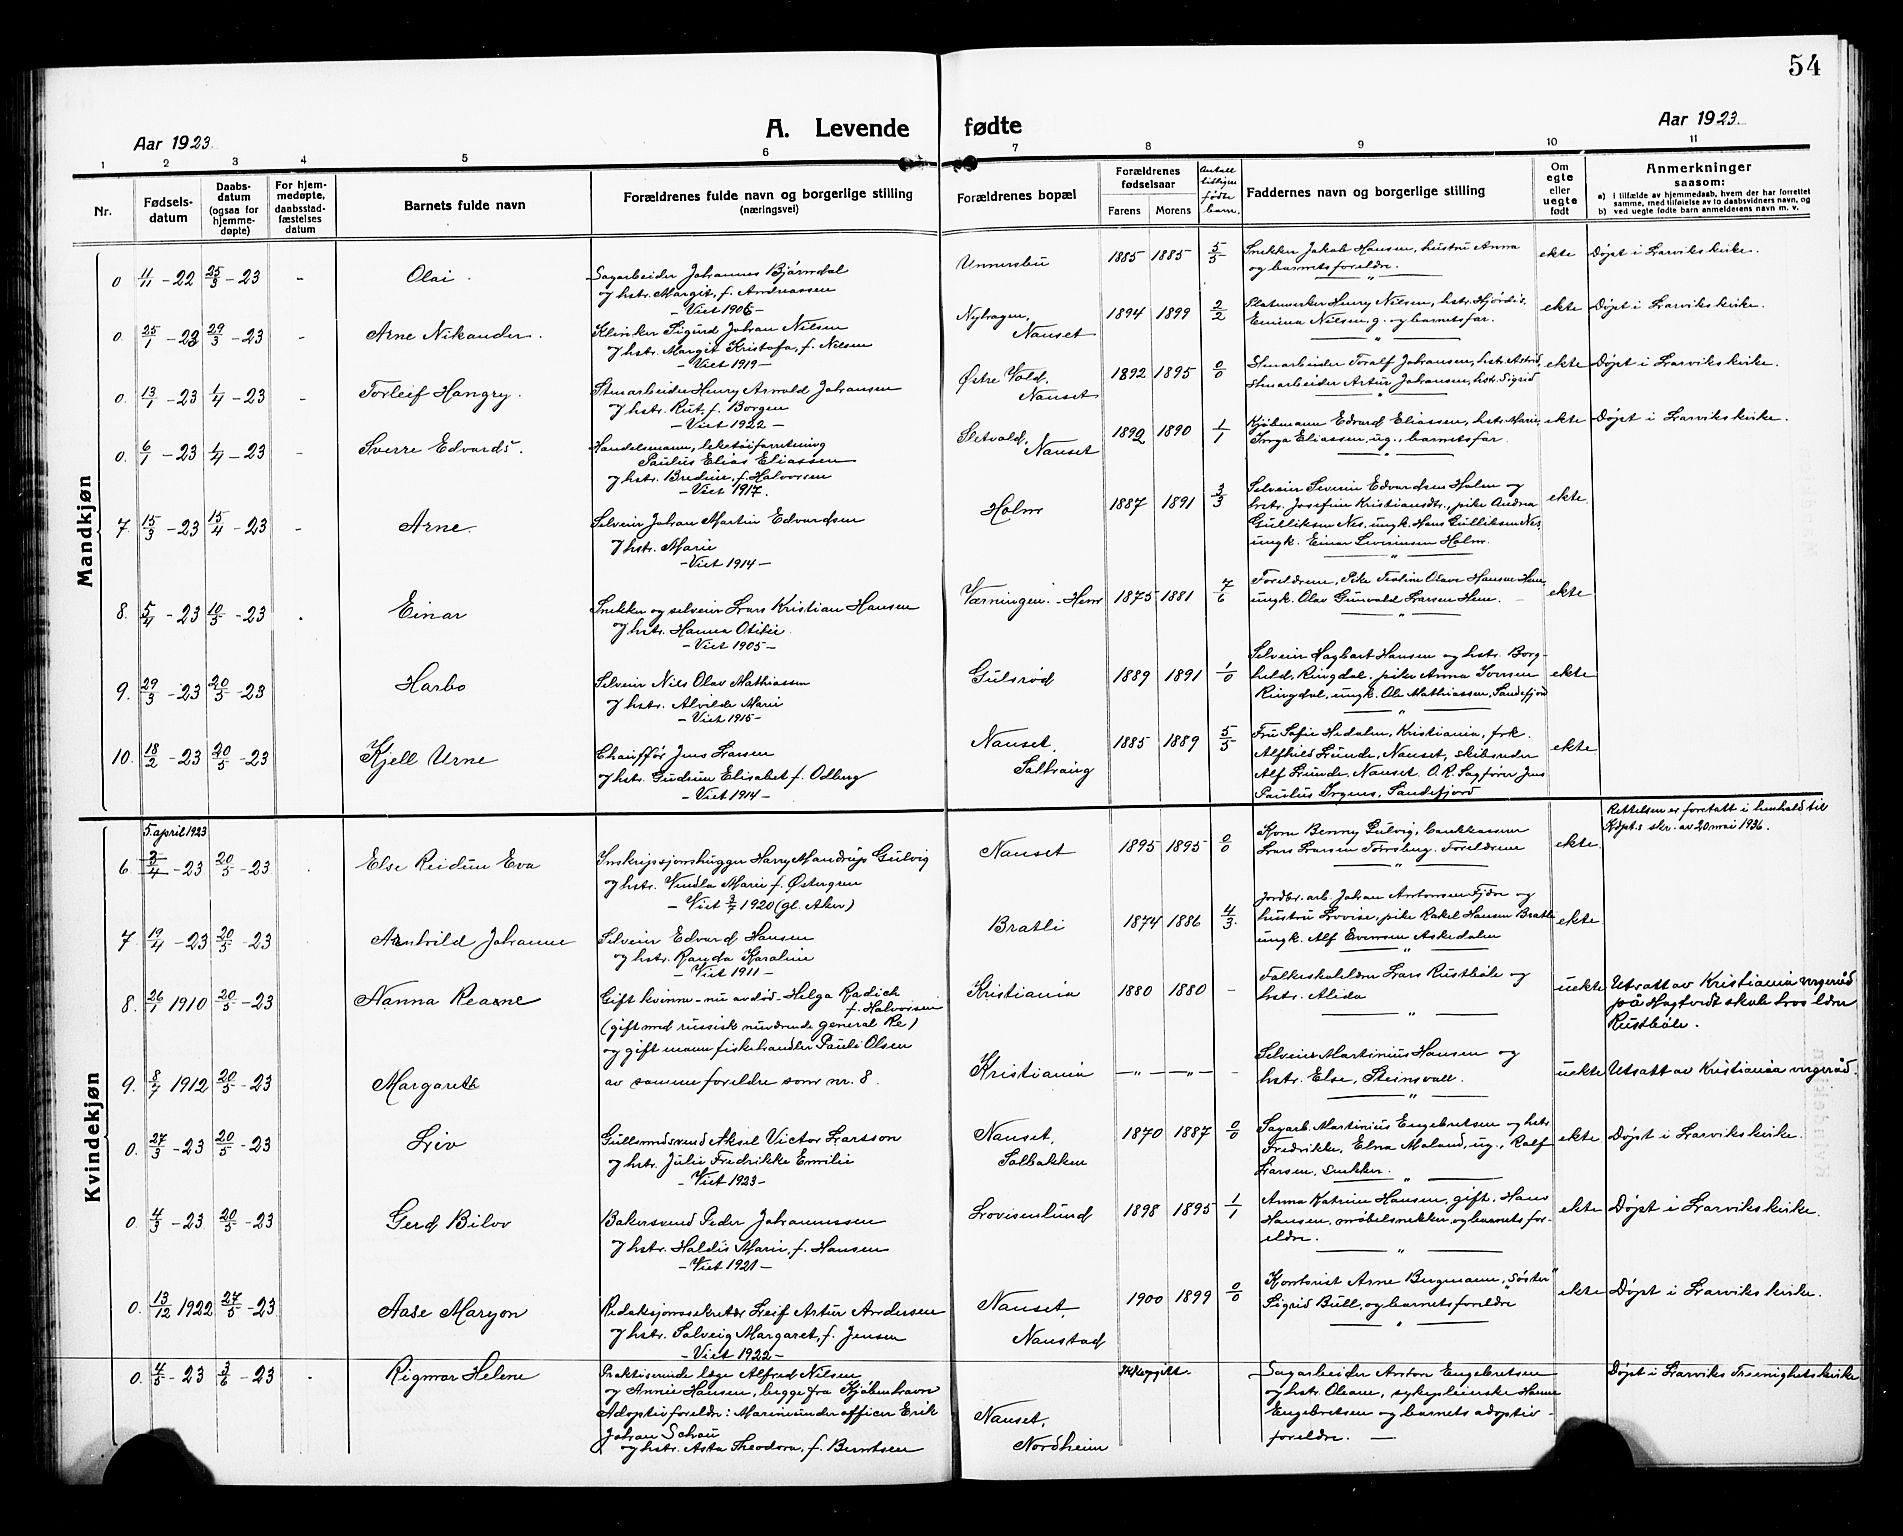 54
A. Levende fødte
Aar 1923.
Aar 1923.
1 2 3 4 5 6 7 8 9 10 11
Nr.
Fødsels-datum
Daabs-datum (ogsaa for hjemme-døpte)
For hjem-medøpte, daabsstad-fæstelses datum
Barnets fulde navn
Forældrenes fulde navn og borgerlige stilling
(næringsvei)
Forældrenes bopæl
Forældrenes fødselsaar
Farens Morens
Antall tidligere fødte barn.
Faddernes navn og borgerlige stilling
Om egte eller uegte født
Anmerkninger
saasom:
a) i tilfælde av hjemmedaab, hvem der har forrettet
samme, med tilføielse av to daabsvidners navn, og
b) ved uegte fødte barn anmelderens navn m. v.
Mandkjøn
0 11/11 - 22 25/3 - 23 - Olai.
Sagarbeider Johannes Bjørndal
og hstr. Margit, f. Andreassen
- Viet 1906 -
Unnersbu 1885 1885 5/5
Snekker Jakob Hansen, hustru Anna
og barnets foreldre.
ekte Døpt i Larviks kirke.
0. 25/1 - 23 29/3 - 23 - Arne Nikander.
Klinker Sigurd Johan Nilsen
og hstr. Margit Kristofa, f. Nilsen
- Viet 1919 -
Nyhagen, Nanset 1894 1899 2/2
Platearbeider Henry Nilsen, hstr. Hjørdis,
Emma Nilsen, g. og barnets far.
ekte Døpt i Larviks kirke.
0. 13/1 - 23 1/4 - 23 - Torleif Hangry.
Stenarbeider Henry Arnold Johansen
og hstr. Rut, f. Borgen
- Viet 1922 -
Østre Vold, Nanset 1892 1895 0/0
Stenarbeider Toralf Johansen, hstr. Astrid
Stenarbeider Artur Johansen, hstr. Sigrid
ekte Døpt i Larviks kirke.
0. 6/1 - 23 1/4 - 23 Sverre Edvards.
Handelsmann, leketøiforretning
Paulus Elias Eliassen
og hstr. Bredine, f. Halvorsen
- Viet 1917.
Sletvold, Nanset 1892 1890 1/1
Kjøbmann Edvard Eliassen, hstr. Marie,
Inga Eliassen, ug., barnets far.
ekte Døpt i Larviks kirke.
7. 15/3 - 23 15/4 - 23 - Arne.
Selveier Johan Martin Edvardsen
og hstr. Marie
- Viet 1914 -
Holm 1887 1891 3/3
Selveier Severin Edvardsen Holm og
hstr. Josefine Kristiansdtr., pike Andrea
Gulliksen Nes, ungk. Hans Gulliksen Nes,
ungk. Einar Severinsen Holm.
ekte
8. 5/4 - 23 10/5 - 23 . Einar
Snekker og selveier Lars Kristian Hansen
og hstr. Hanna Otilie.
- Viet 1905 -
Værningen - Hem 1875 1881 7/6
Foreldrene, Pike Tealine Olava Hansen Hem,
ungk. Olav Gunvald Larsen Hem.
ekte
9. 29/3 - 23 20/5 - 23 Harbo
Selveier Nils Olav Mathiassen
og hstr. Alvilde Marie
- Viet 1915 -
Gulsrød 1889 1891 1/0
Selveier Hagbart Hansen og hstr. Borg-
hild, Ringdal, pike Anna Iversen
Ringdal, ungk. Ole Mathiassen, Sandefjord
ekte
10. 18/2 - 23 20/5 - 23 Kjell Urne
Chauffør Jens Larsen
og hstr. Gudrun Elisabet f. Odberg
- Viet 1914 -
Nanset, Solhaug 1885 1889 5/5
Fru Sofie Hedalen, Kristiania, frk.
Alfhild Lunde, Nanset, skibsreder
Alf Lunde, Nanset. O.R. Sagfører Jens
Paulus Irgens, Sandefjord
ekte
Kvindekjøn
5. april 1923
6. 2/4 - 23 20/5 - 23 Else Reidun Eva
Inskripsjonshugger Harry Mandrup Gulvig
og hstr. Vendla Marie f. Østergren
- Viet 3/7 1920 (gl. Aker)
Nanset 1895 1895 0/0
Kone Benny Gulvig, bankkasserer
Lars Larsen Tønsberg. Foreldrene
ekte.
Rettelsen er foretatt i henhold til
Kdpt.s skr. av 20 mai 1936.
7 19/4 - 23 20/5 - 23 Arnhild Johanne
Selveier Edvard Hansen
og hstr. Ragda Karoline
- Viet 1911 -
Bratli 1874 1886 4/3.
Jordbr. arb. Johan Antonsen Fjære og
hustru Lovise, pike Rakel Hansen Bratli
ungk. Alf Evensen Askedalen
ekte.
8. 26/7 1910 20/5 - 23 Nanna Rearne
Gift kvinne - nu avdød - Helga Radich
f. Halvorsen
(gift med russisk nuværende general Re)
og gift mann fiskehandler Pauli Olsen
Kristiania 1880 1880 -
Folkeskolelærer Lars Rustbøle og
hstr. Alida
uekte Utsatt av Kristiania vergeråd
på Hagtvedt skole hos lærer
Rustbøle.
9. 8/7 1912 20/5 - 23 Margarett
av samme foreldre som nr. 8.
Kristiania - „ - - „ - -
Selveier Martinius Hansen og
hstr. Else, Steinsvall.
uekte Utsatt av Kristiania vergeråd.
0. 27/3 - 23 20/5 - 23 Liv
Gullsmedsvend Aksel Victor Larsson
og hstr. Julie Fredrikke Emilie
- Viet 1923 -
Nanset, Solbakken 1870 1887 0/0
Sagarb. Martinius Engebretsen og hstr.
Fredrikke, Elna Moland, ug., Ralf
Larsen, snekker.
ekte Døpt i Larviks kirke.
0. 4/3 - 23 20/5 - 23 Gerd Bilov
Bakersvend Peder Johannessen
og hstr. Haldis Marie, f. Hansen
- Viet 1921 -
Lovisenlund 1898 1895 1/1
Anna Katrine Hansen, gift, Hans
Hansen, møbelsnekker, og barnets for-
eldre.
ekte Døpt i Larviks kirke.
0. 13/12 1922 27/5 - 23 Aase Maryon
Redaksjonssekretær Leif Artur Andersen
og hstr. Solveig Margaret, f. Jensen
- Viet 1922 -
Nanset, Nanstad 1900 1899 0/0
Kontorist Arne Bergmann, "søster"
Sigrid Bull, og barnets foreldre
ekte Døpt i Larviks kirke.
0. 4/5 - 23 3/6 - 23 . Rigmor Helene
Praktiserende læge Alfred Nilsen
og Annie Hansen, begge fra Kjøbenhavn
Adoptivforeldre: Marineunderofficer Erik
Johan Schau
og hstr. Asta Theodora, f. Berntsen
Nanset, Nordheim
Ikke opgitt.
Sagarbeider Anton Engebretsen
og hstr. Oleane, sykepleierske Hanna
Engebretsen og barnets adoptiv-
foreldre. -
Døpt i Larviks Treenighetskirke